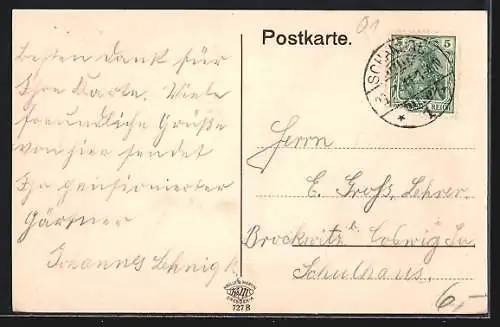 01
Postkarte.
5
REICH
SCHA
Besten Dank für
Ihre Karte. Viele
freundliche Grüße
von hier sendet
Ihr pensionierter
Gärtner
Johannes Lehnigk
Herrn
E. Groß, Lehrer
Brockwitz b. Coswig Sa
Schulhaus.
727 B
6,-